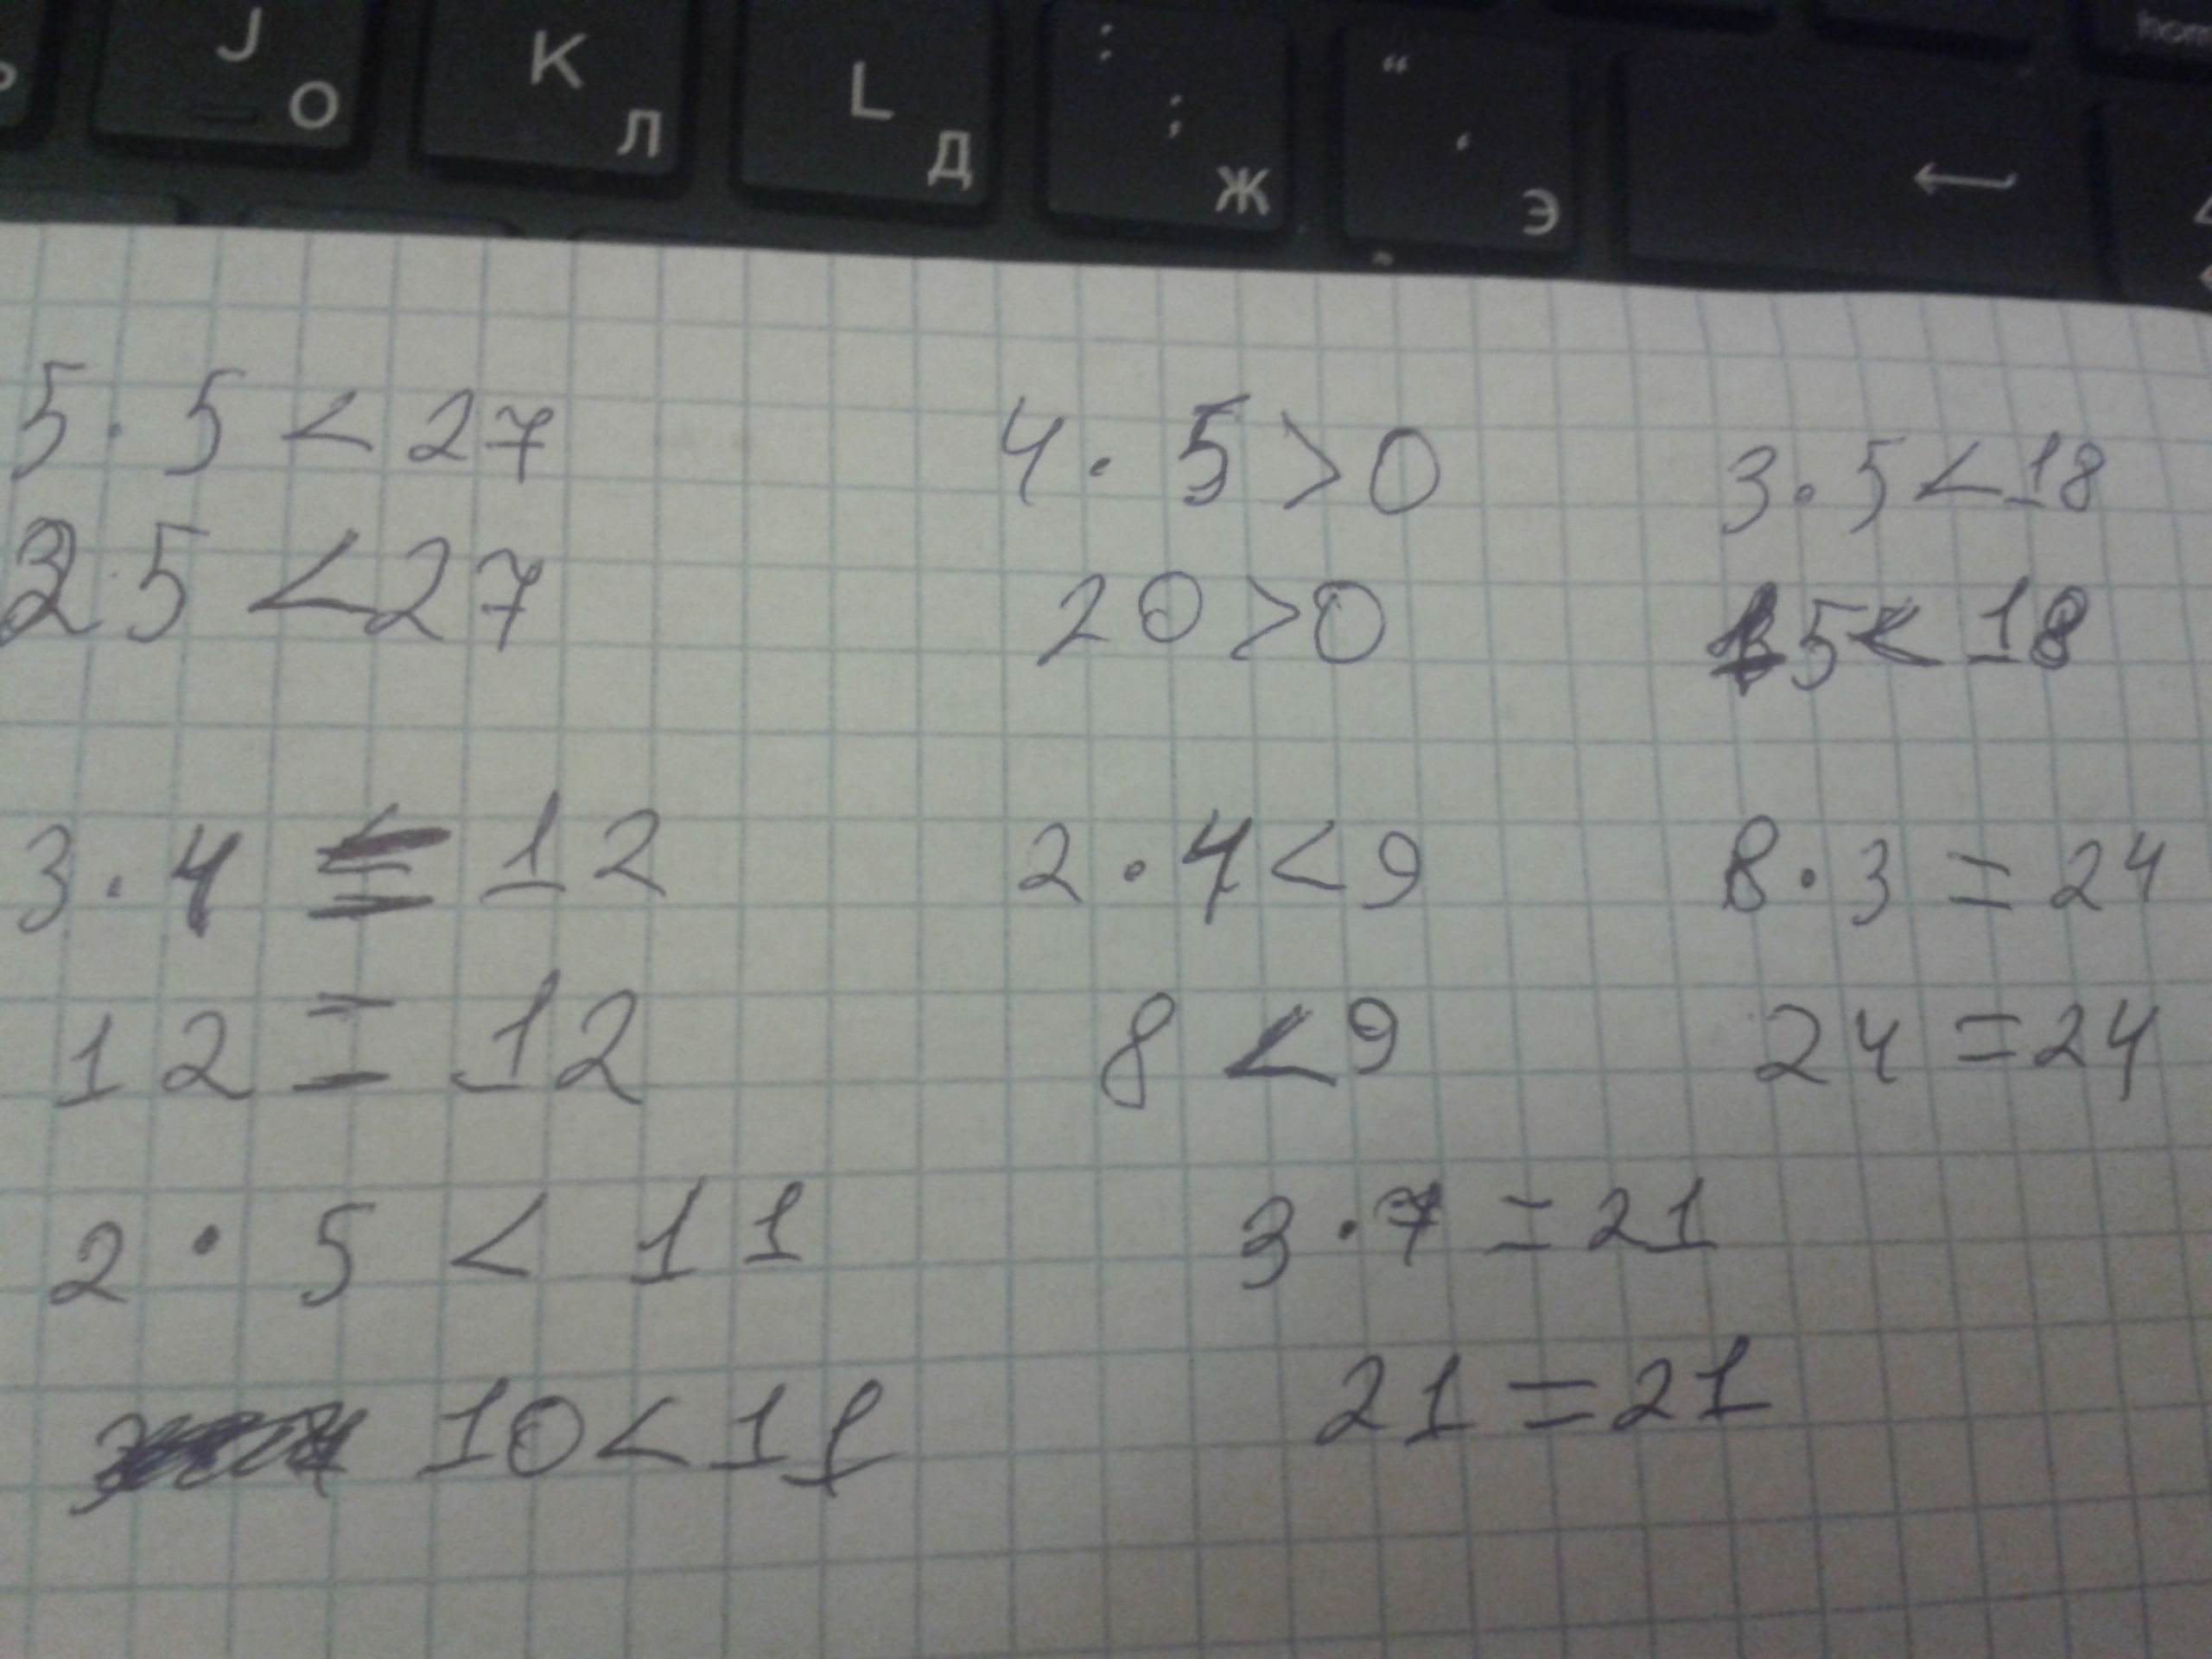 J О K Л L Д : ; Ж “ ‘ Э ←
5 · 5 < 27 4 · 5 > 0 3 · 5 < 18
25 < 27 20 > 0 15 < 18
3 · 4 = 12 2 · 4 < 9 8 · 3 = 24
12 = 12 8 < 9 24 = 24
2 · 5 < 11 3 · 7 = 21
10 < 11 21 = 21